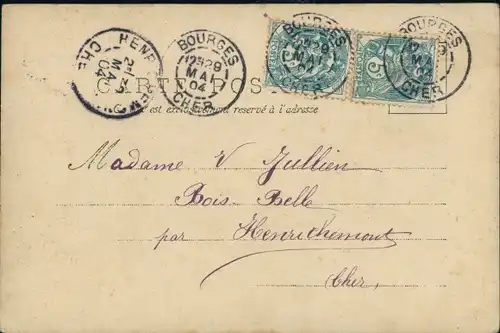 BOURGES
MAI
04
CHER
BOURGES
MAI
CHER
BOURGES
MAI
CHER
5
CARTE POS
est exclusivement reservé à l'adresse
Madame V Jullien
Bois Belle
par Henrichemont
Cher,